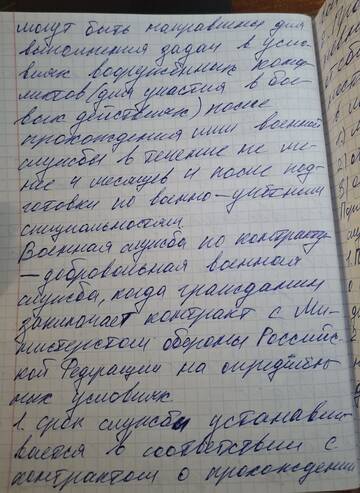 могут быть направлены для
выполнения задач в усло-
виях вооружённых конф-
ликтов (для участия в бое-
вых действиях) после
прохождения ими военной
службы в течение не ме-
нее 4 месяцев и после под-
готовки по военно-учётным
специальностям.
Военная служба по контракту
– добровольная военная
служба, когда гражданин
заключает контракт с Ми-
нистерством обороны Российс-
кой Федерации на определён-
ных условиях
1. срок службы устанавли-
вается в соответствии с
контрактом о прохождении